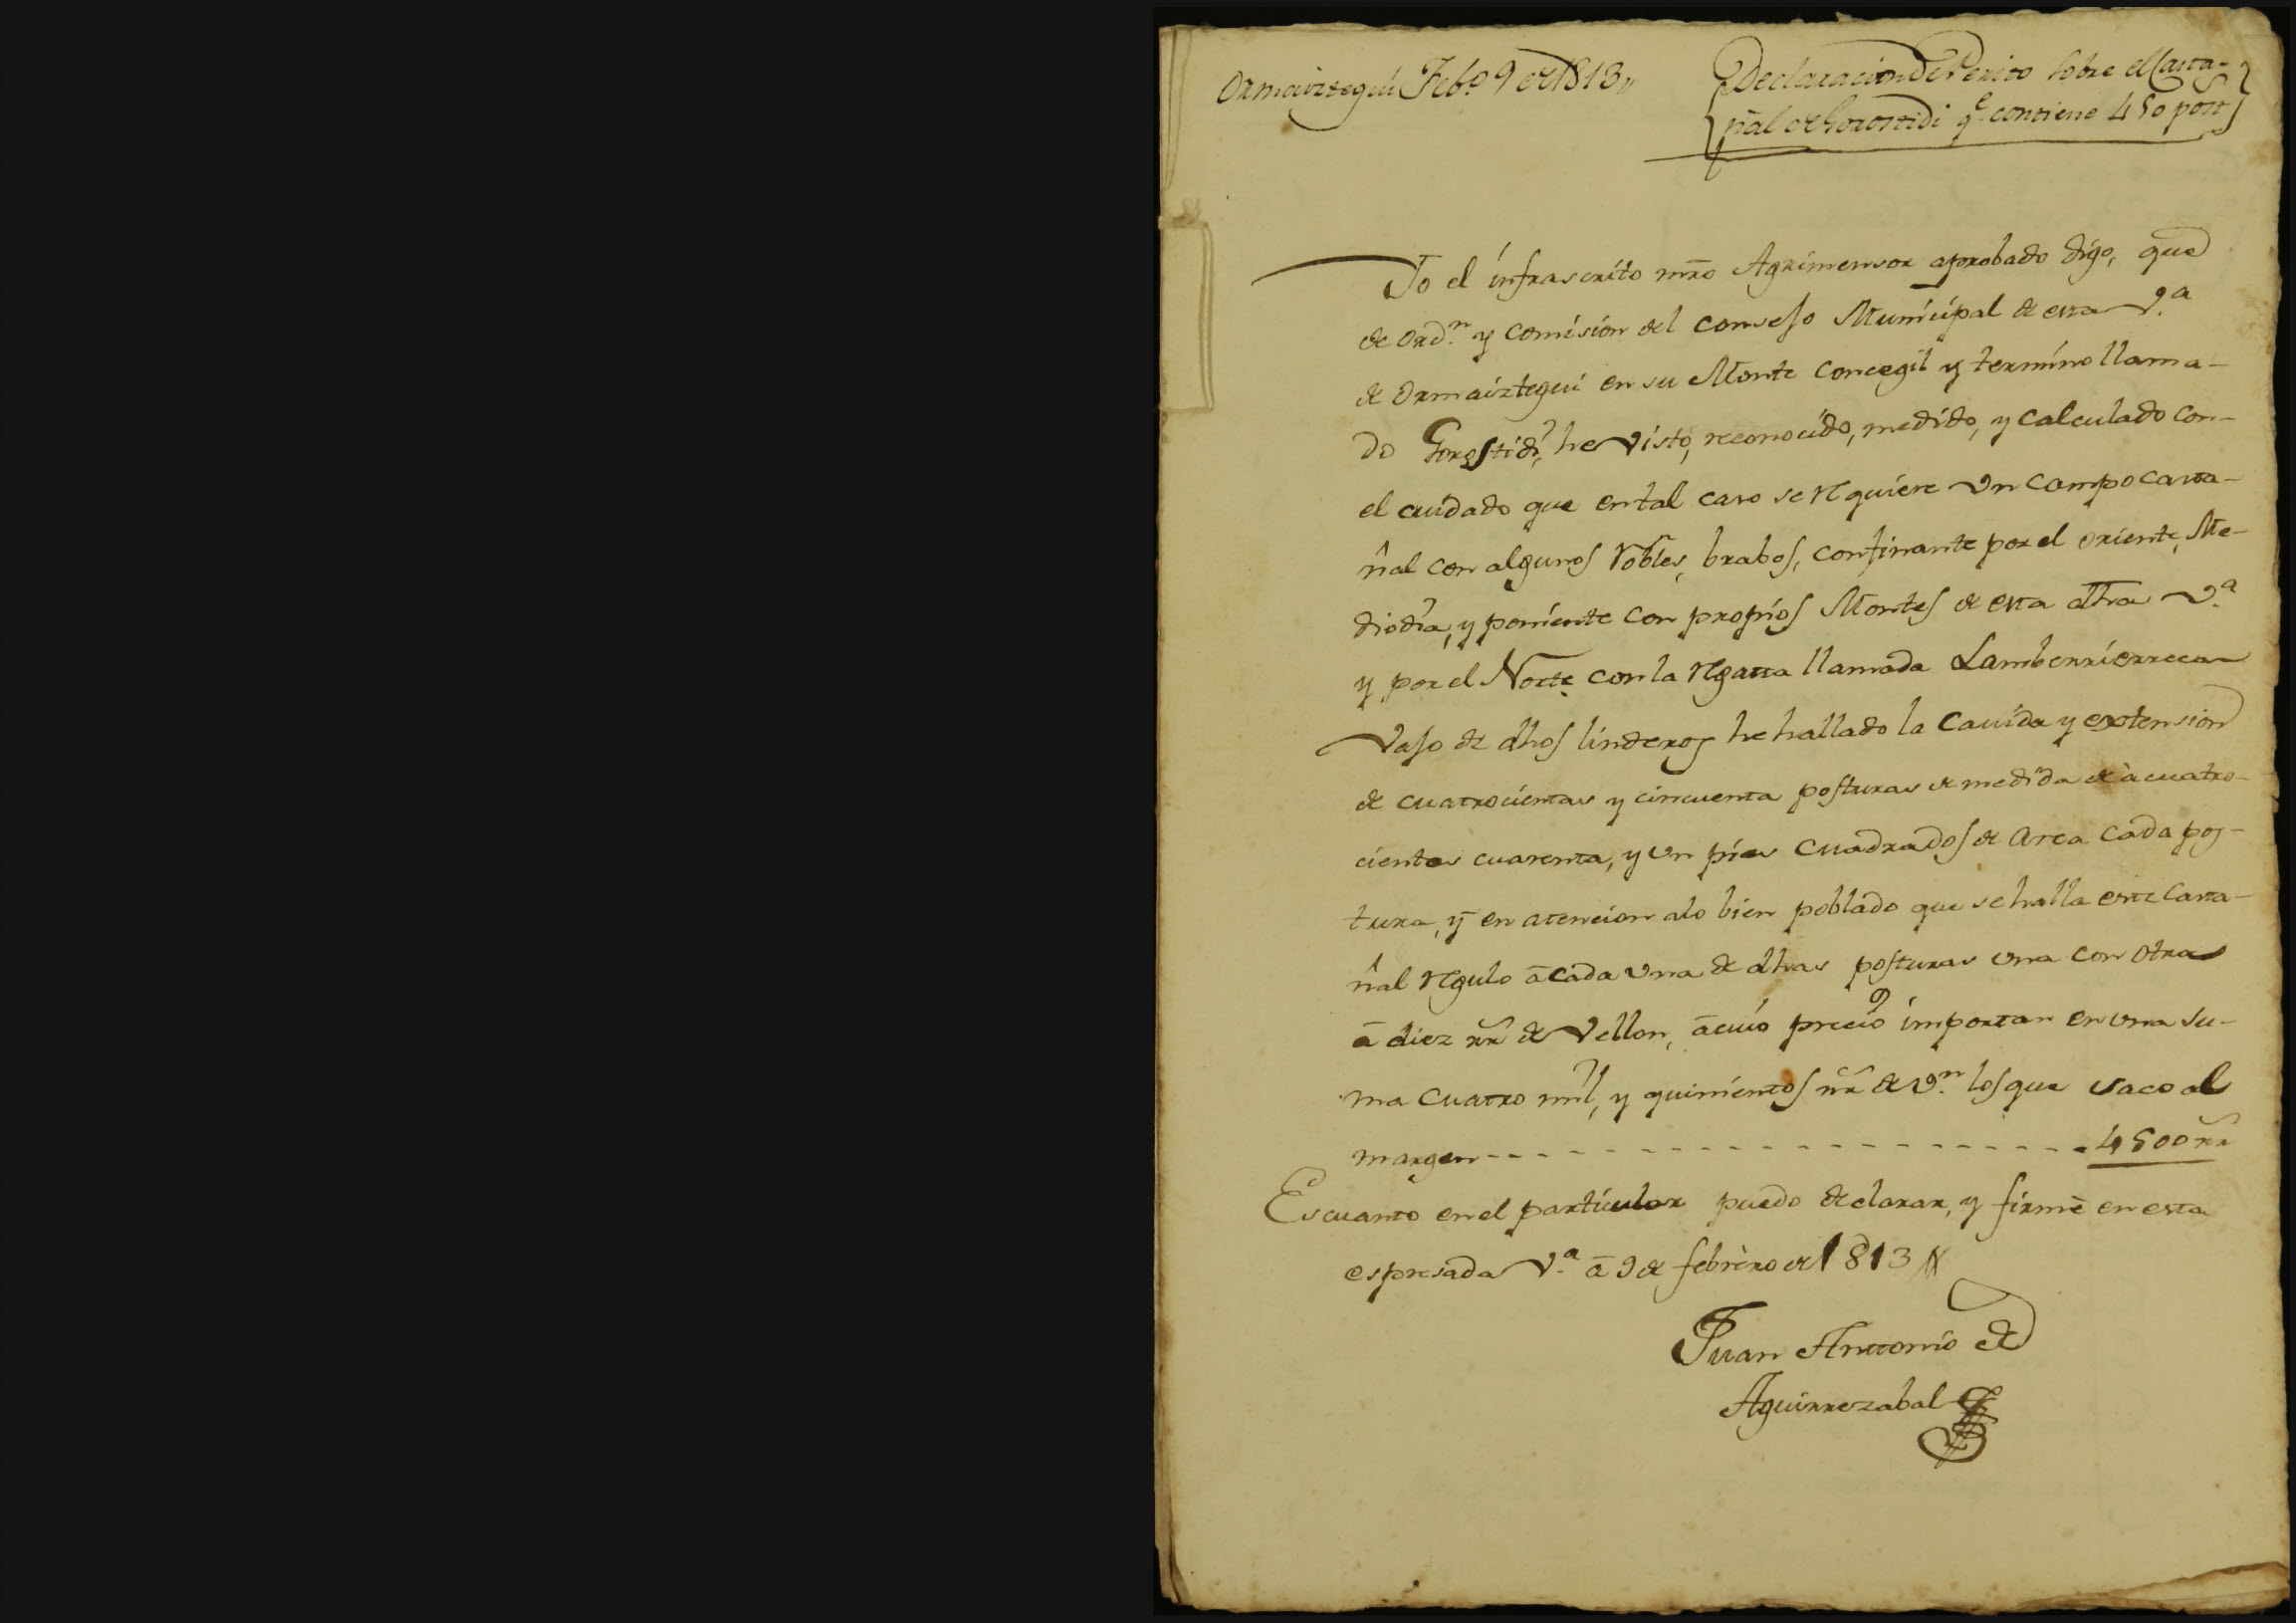 Ormaiztegui Feb.º 9 de 1813,,
Declaracion de Perito sobre el Casta-
ñal de Gorostidi q.e contiene 450 post.s
Yo el infrascrito mrō Agrimensor aprobado digo, que
de ord.n y comision del consejo Municipal de esta V.a
de Ormaiztegui en su Monte concegil y termino llama-
do Gorostidi, he visto, reconocido, medido, y calculado con
el cuidado que en tal caso se requiere un campo casta-
ñal con algunos robles, brabos, confinante por el oriente, Me-
diodia, y poniente con propios Montes de esta dha V.a
y por el Norte con la regata llamada Lamberrierreca
vajo de dhos linderos he hallado la cavida y extension
de cuatrocientas y cincuenta posturas de medida de à cuatro-
cientos cuarenta, y un pies cuadrados de area cada pos-
tura, y en atencion alo bien poblado que se halla este Casta-
ñal regulo à cada una de dhas posturas una con otra
à diez rr.s de Vellon, à cuio precio importan en una su-
ma cuatro mil, y quinientos rr.s de V.n los que saco al
margen - - - - - - - - - - - - - - - - - - - - 4500 rr.s
Es cuanto en el particular puedo declarar, y firmè en esta
espresada V.a à 9 de febrèro de 1813
Juan Anttonio de
Aguirrezabal